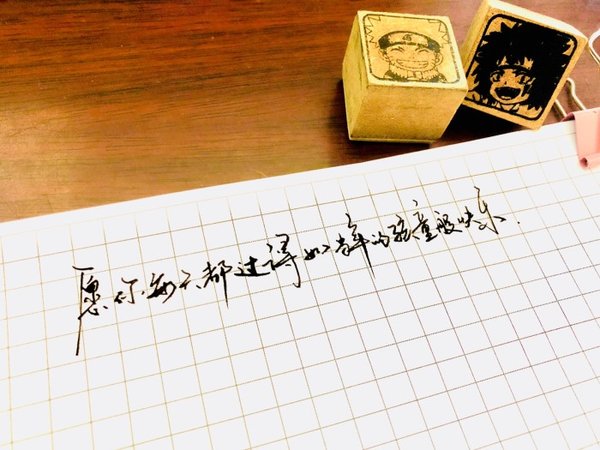 愿你每天都过得如年的孩童般快乐.